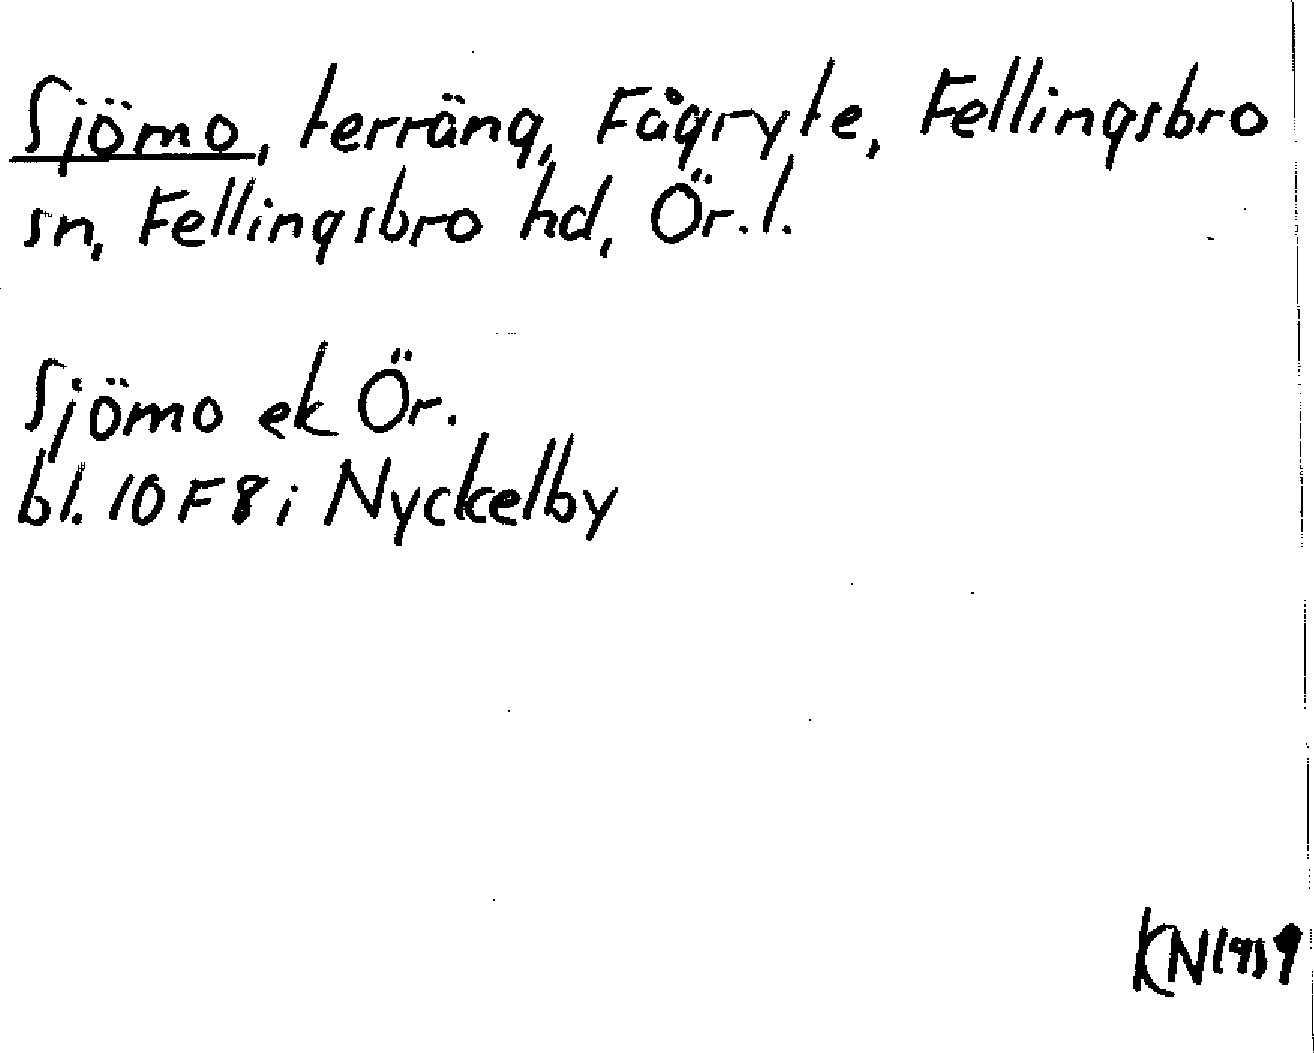 Sjömo, terräng, Fågryte, Fellingsbro
sn, Fellingsbro hd, Ör. l.
Sjömo ek Ör.
bl. 10 F 8 i Nyckelby
KN